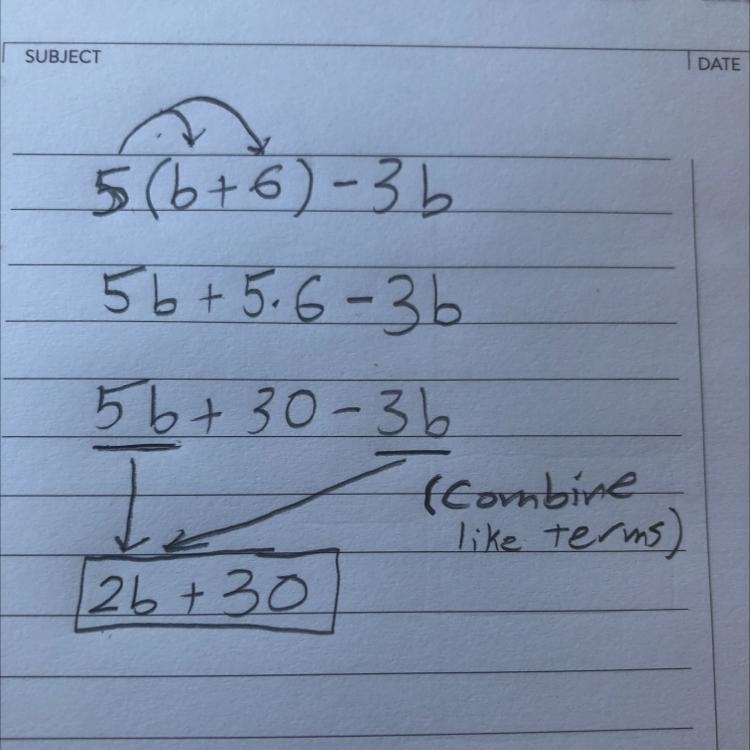 SUBJECT
DATE
5(b+6)-3b
5b+5·6-3b
5b+30-3b
(Combine
like terms)
2b+30